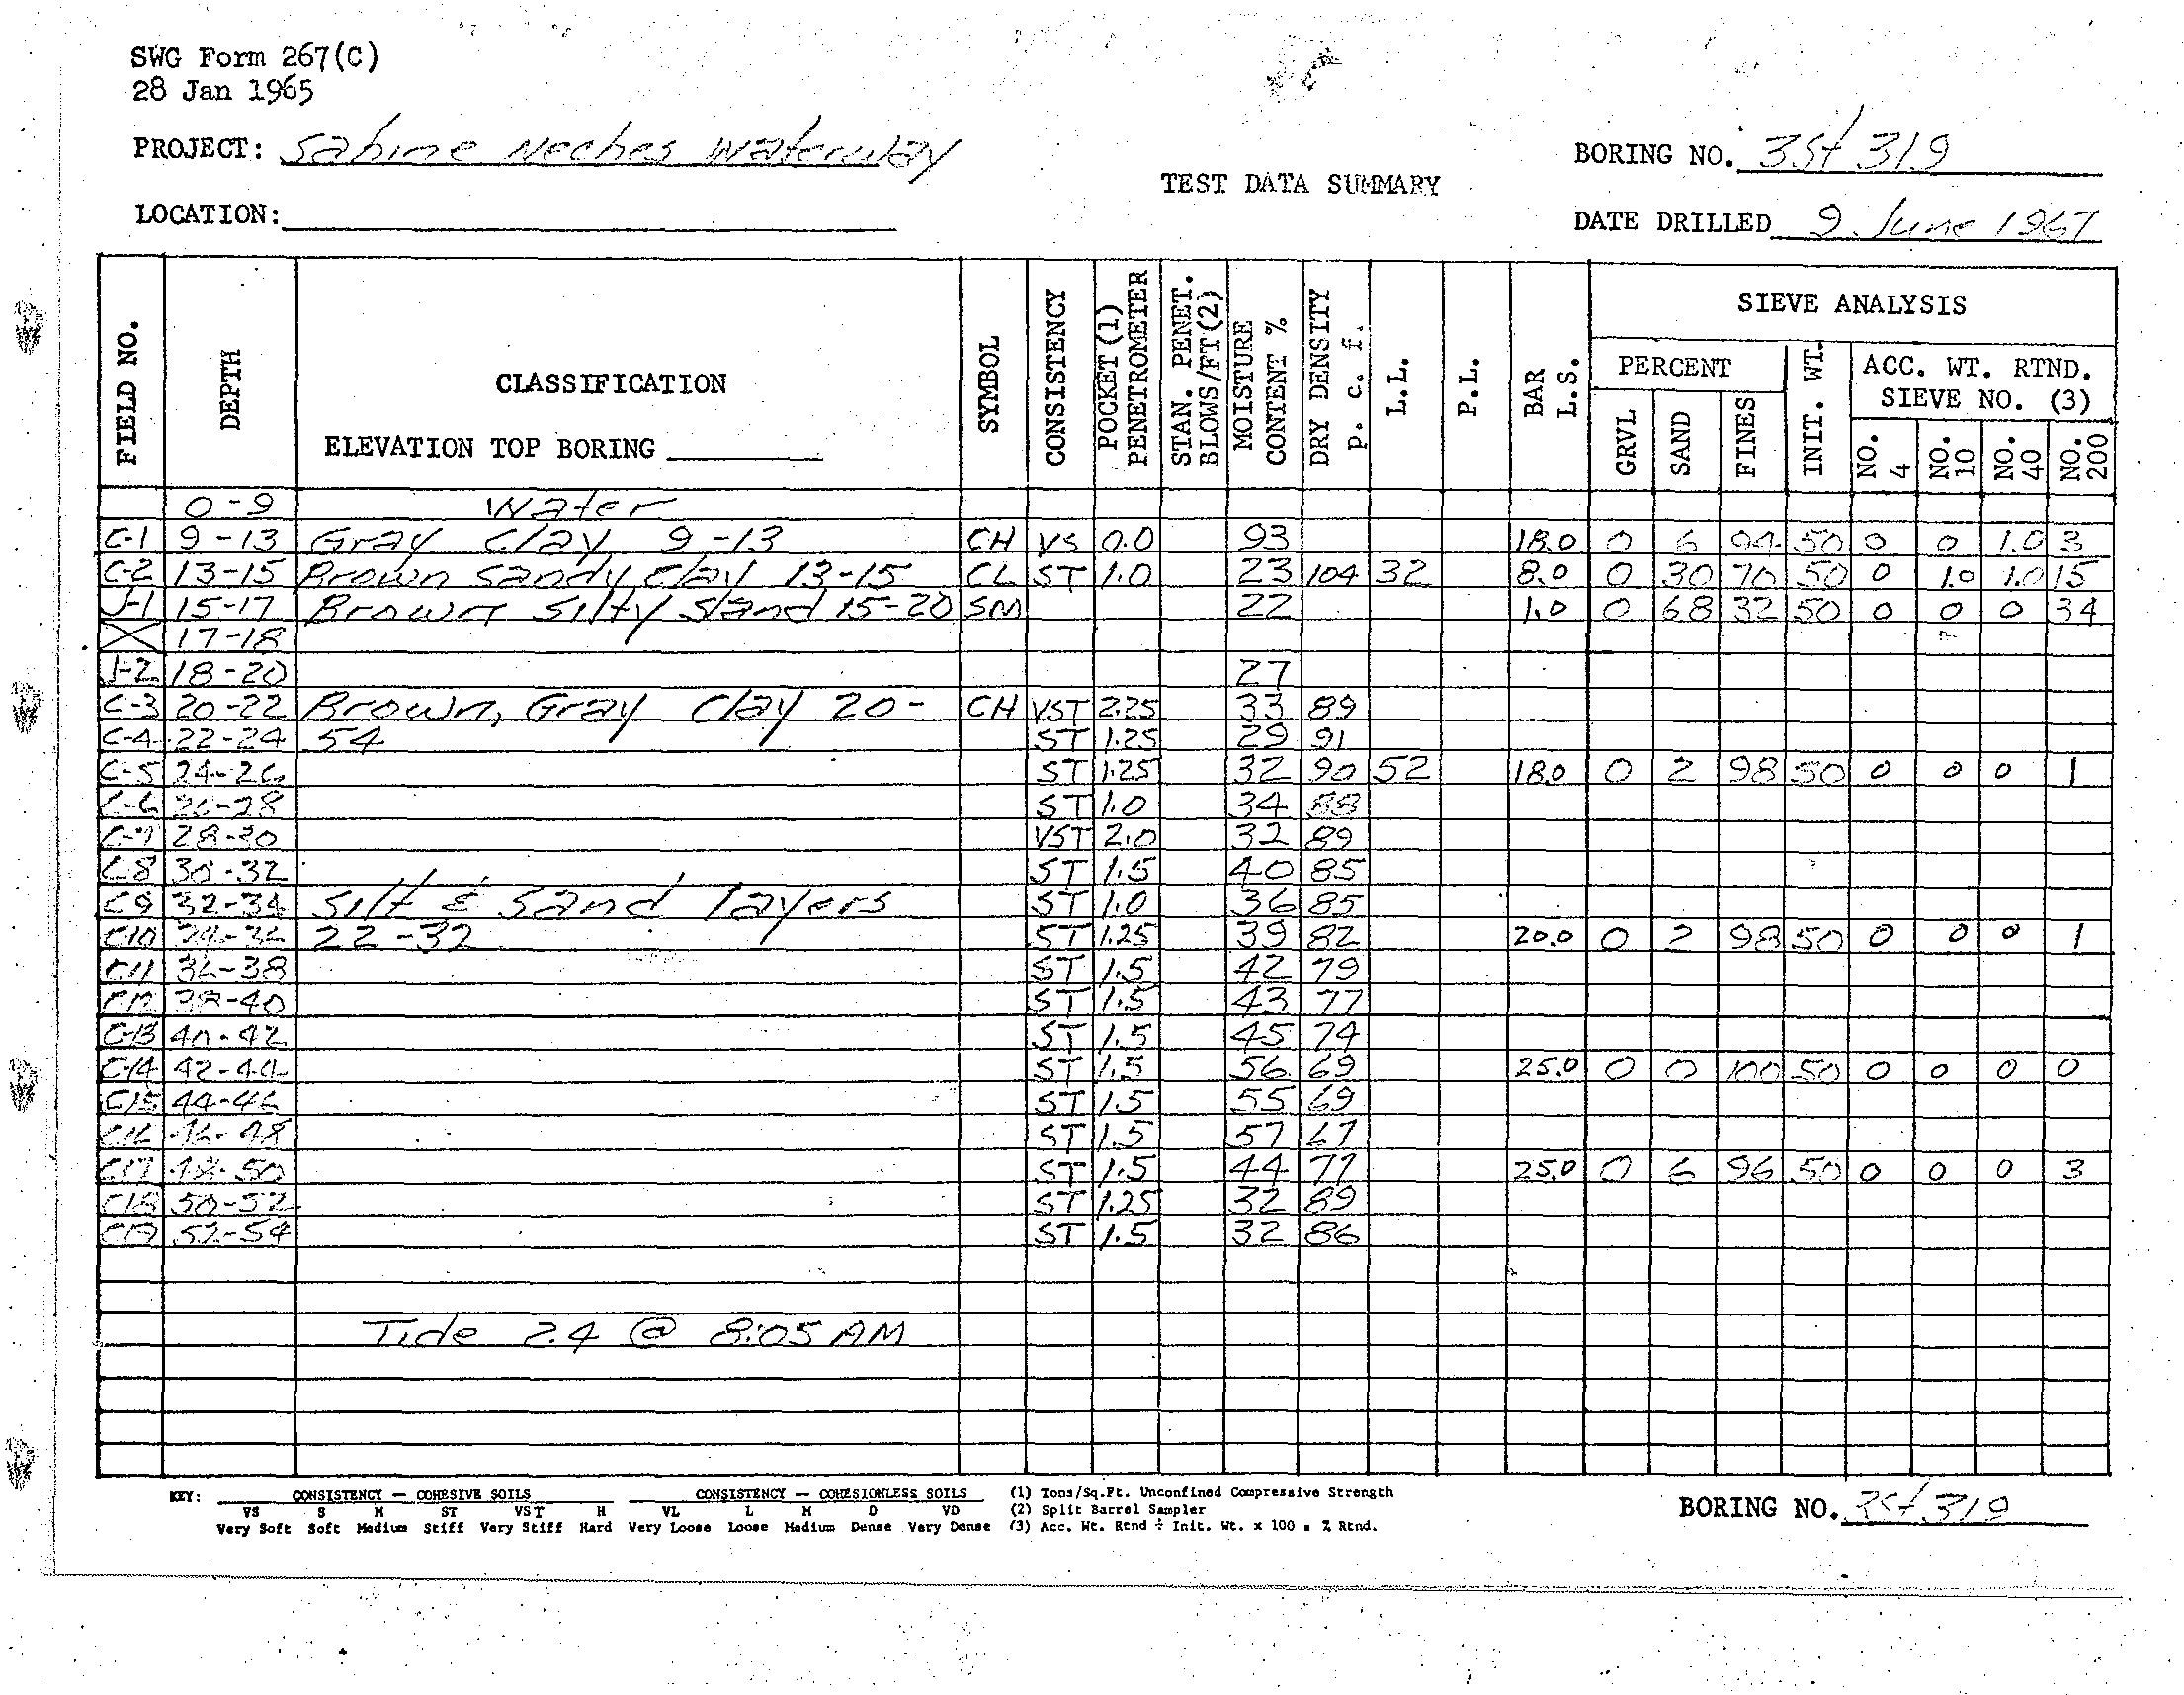 SWG Form 267(C)
28 Jan 1965
PROJECT: Sabine Neches Waterway
BORING NO. 3St 319
TEST DATA SUMMARY
LOCATION:
DATE DRILLED 9 June 1967
FIELD NO. DEPTH CLASSIFICATION ELEVATION TOP BORING SYMBOL CONSISTENCY POCKET (1) PENETROMETER STAN. PENET. BLOWS/FT(2) MOISTURE CONTENT % DRY DENSITY p. c. f. L.L. P.L. BAR L.S.
SIEVE ANALYSIS
PERCENT GRVL SAND FINES INIT. WT. ACC. WT. RTND. SIEVE NO. (3) NO. 4 NO. 10 NO. 40 NO. 200
0-9 Water
C-1 9-13 Gray Clay 9-13 CH VS 0.0 93 18.0 0 6 94 50 0 0 1.0 3
C-2 13-15 Brown Sandy Clay 13-15 CL ST 1.0 23 104 32 8.0 0 30 70 50 0 1.0 1.0 15
J-1 15-17 Brown Silty Sand 15-20 SM 22 1.0 0 68 32 50 0 0 0 34
X 17-18
J-2 18-20 27
C-3 20-22 Brown, Gray Clay 20- CH VST 2.25 33 89
C-4 22-24 54 ST 1.25 29 91
C-5 24-26 ST 1.25 32 90 52 18.0 0 2 98 50 0 0 0 1
C-6 26-28 ST 1.0 34 88
C-7 28-30 VST 2.0 32 89
C8 30-32 ST 1.5 40 85
C9 32-34 Silt & Sand layers ST 1.0 36 85
C10 34-36 22-32 ST 1.25 39 82 20.0 0 2 98 50 0 0 0 1
C11 36-38 ST 1.5 42 79
C12 38-40 ST 1.5 43 77
C-13 40-42 ST 1.5 45 74
C-14 42-44 ST 1.5 56 69 25.0 0 0 100 50 0 0 0 0
C15 44-46 ST 1.5 55 69
C16 46-48 ST 1.5 57 67
C17 48-50 ST 1.5 44 77 25.0 0 6 96 50 0 0 0 3
C18 50-52 ST 1.25 32 89
C19 52-54 ST 1.5 32 86
Tide 2.4 @ 8:05 AM
KEY: CONSISTENCY — COHESIVE SOILS CONSISTENCY — COHESIONLESS SOILS (1) Tons/Sq.Ft. Unconfined Compressive Strength
VS S M ST VST H VL L M D VD (2) Split Barrel Sampler
Very Soft Soft Medium Stiff Very Stiff Hard Very Loose Loose Medium Dense Very Dense (3) Acc. Wt. Rtnd ÷ Init. Wt. x 100 = % Rtnd.
BORING NO. 3St 319